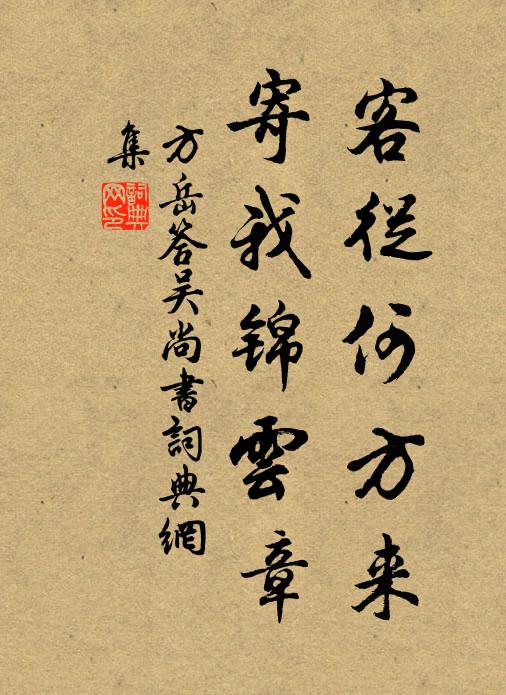 客從何方来
寄我錦雲章
方岳答吴尚書詞典網
集
詞典
网印